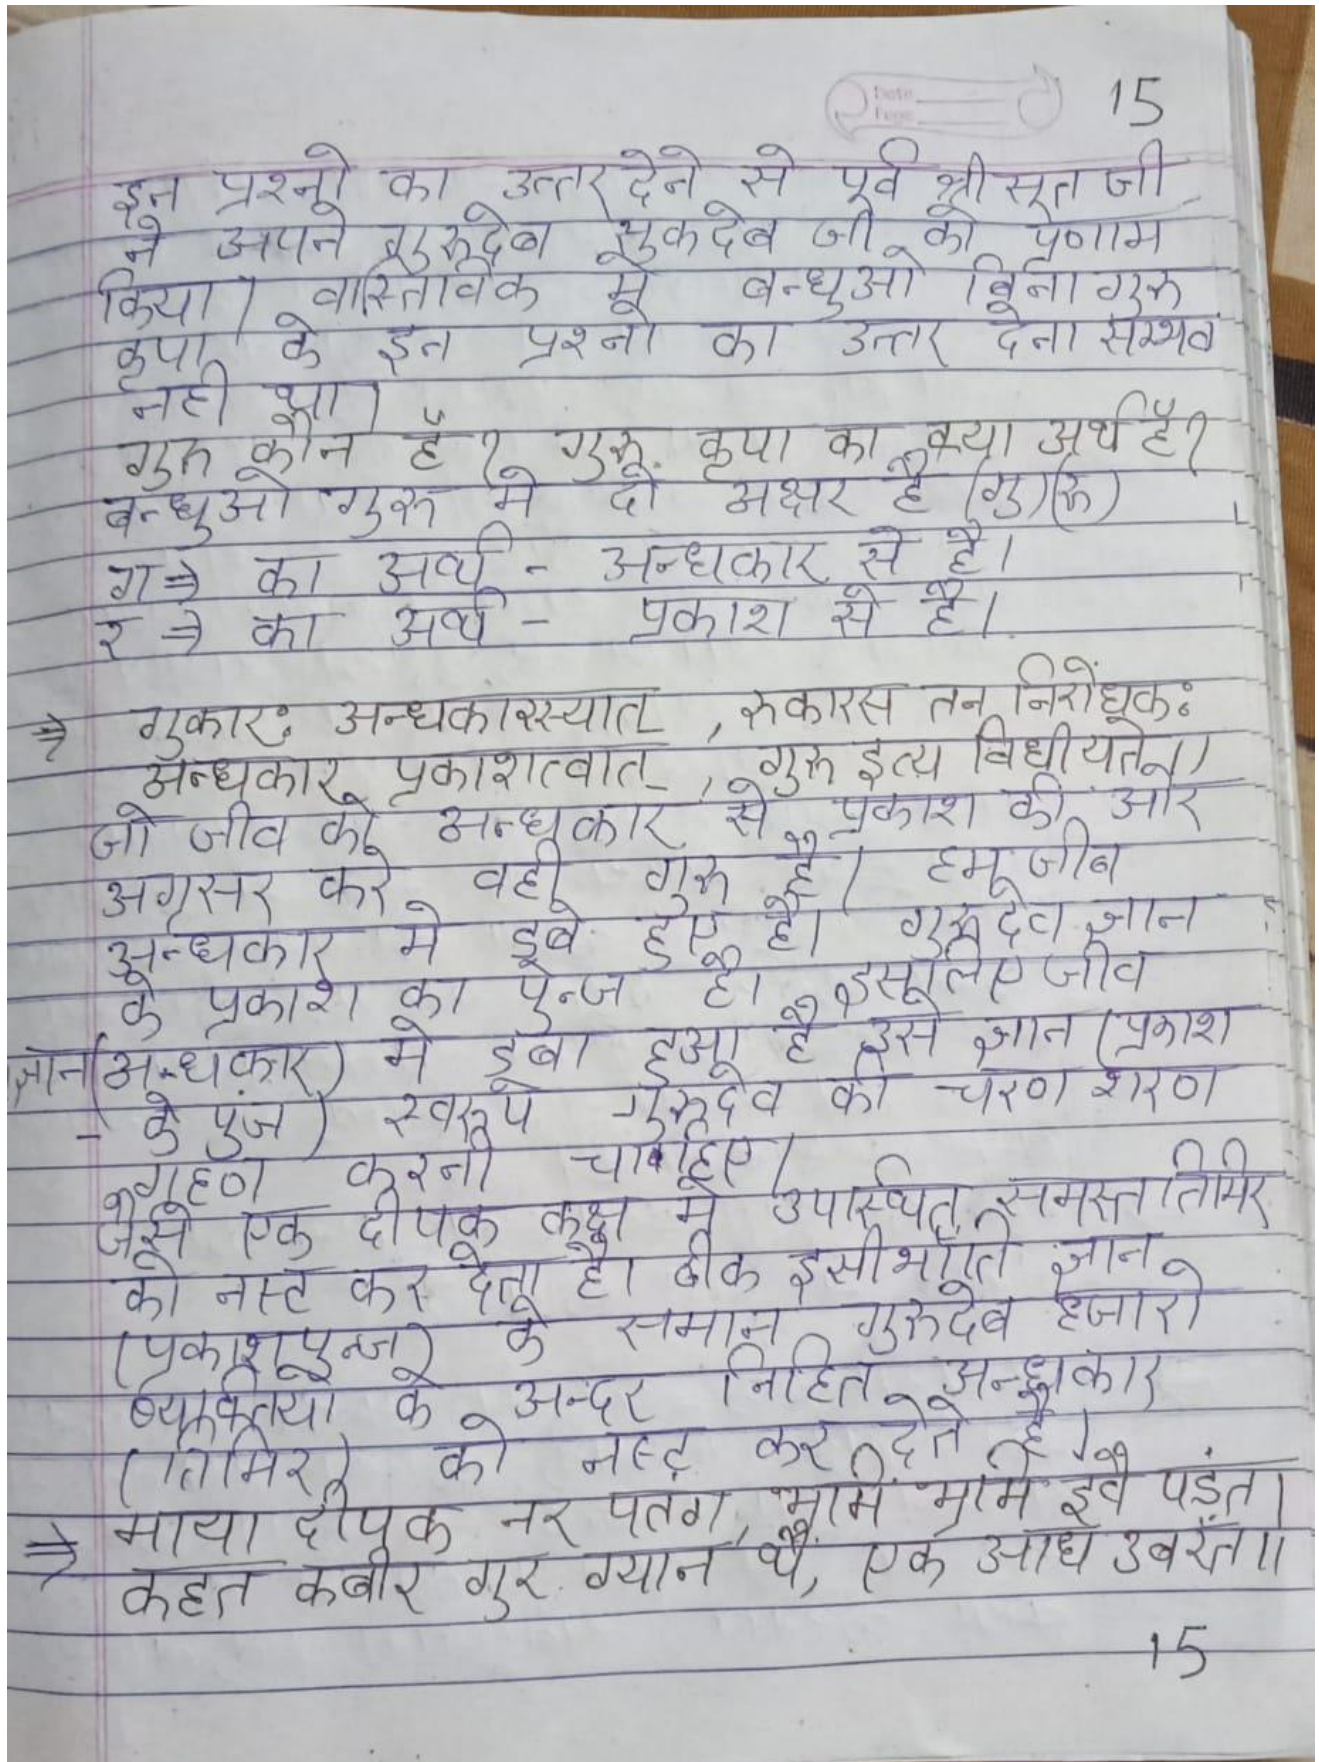 Date
Page
15
इन प्रश्नो का उत्तर देने से पूर्व श्री सूत जी
ने अपने गुरूदेब सुकदेब जी को प्रणाम
किया। वास्तिविक मे बन्धुओ बिना गुरू
कृपा के इन प्रश्नो का उत्तर देना सम्भव
नही था।
गुरू कौन है? गुरू कृपा का क्या अर्थ है?
बन्धुओ गुरू मे दो अक्षर है (गु)(रू)
ग⇒ का अर्थ - अन्धकार से है।
र ⇒ का अर्थ - प्रकाश से है।
⇒ गुकारः अन्धकारस्यात्, रुकारस तन निरोधकः
अन्धकार प्रकाशत्वात्, गुरू इत्य विधीयतेे।।
जो जीव को अन्धकार से प्रकाश की ओर
अग्रसर करे वही गुरू है। हम जीब
अन्धकार मे डूबे हुए है। गुरूदेव ज्ञान
के प्रकाश का पुन्ज है। इसलिए जीव
ज्ञान(अन्धकार) मे डूबा हुआ है उसे ज्ञान (प्रकाश
- के पुंज) स्वरूप गुरूदेव की चरण शरण
ग्रहण करनी चाहिए।
जैसे एक दीपक कक्ष मे उपस्थित समस्त तिमिर
को नस्ट कर देता है। ठीक इसी भाँति ज्ञान
(प्रकाशपुन्ज) के समान गुरूदेब हजारो
ब्यक्तियो के अन्दर निहित अन्धकार
(तिमिर) को नस्ट कर देते है।
⇒ माया दीपक नर पतंग, भ्रमि भ्रमि इवै पड़ंत।
कहत कबीर गुर ग्यान थै, एक आध उबरंत।।
15